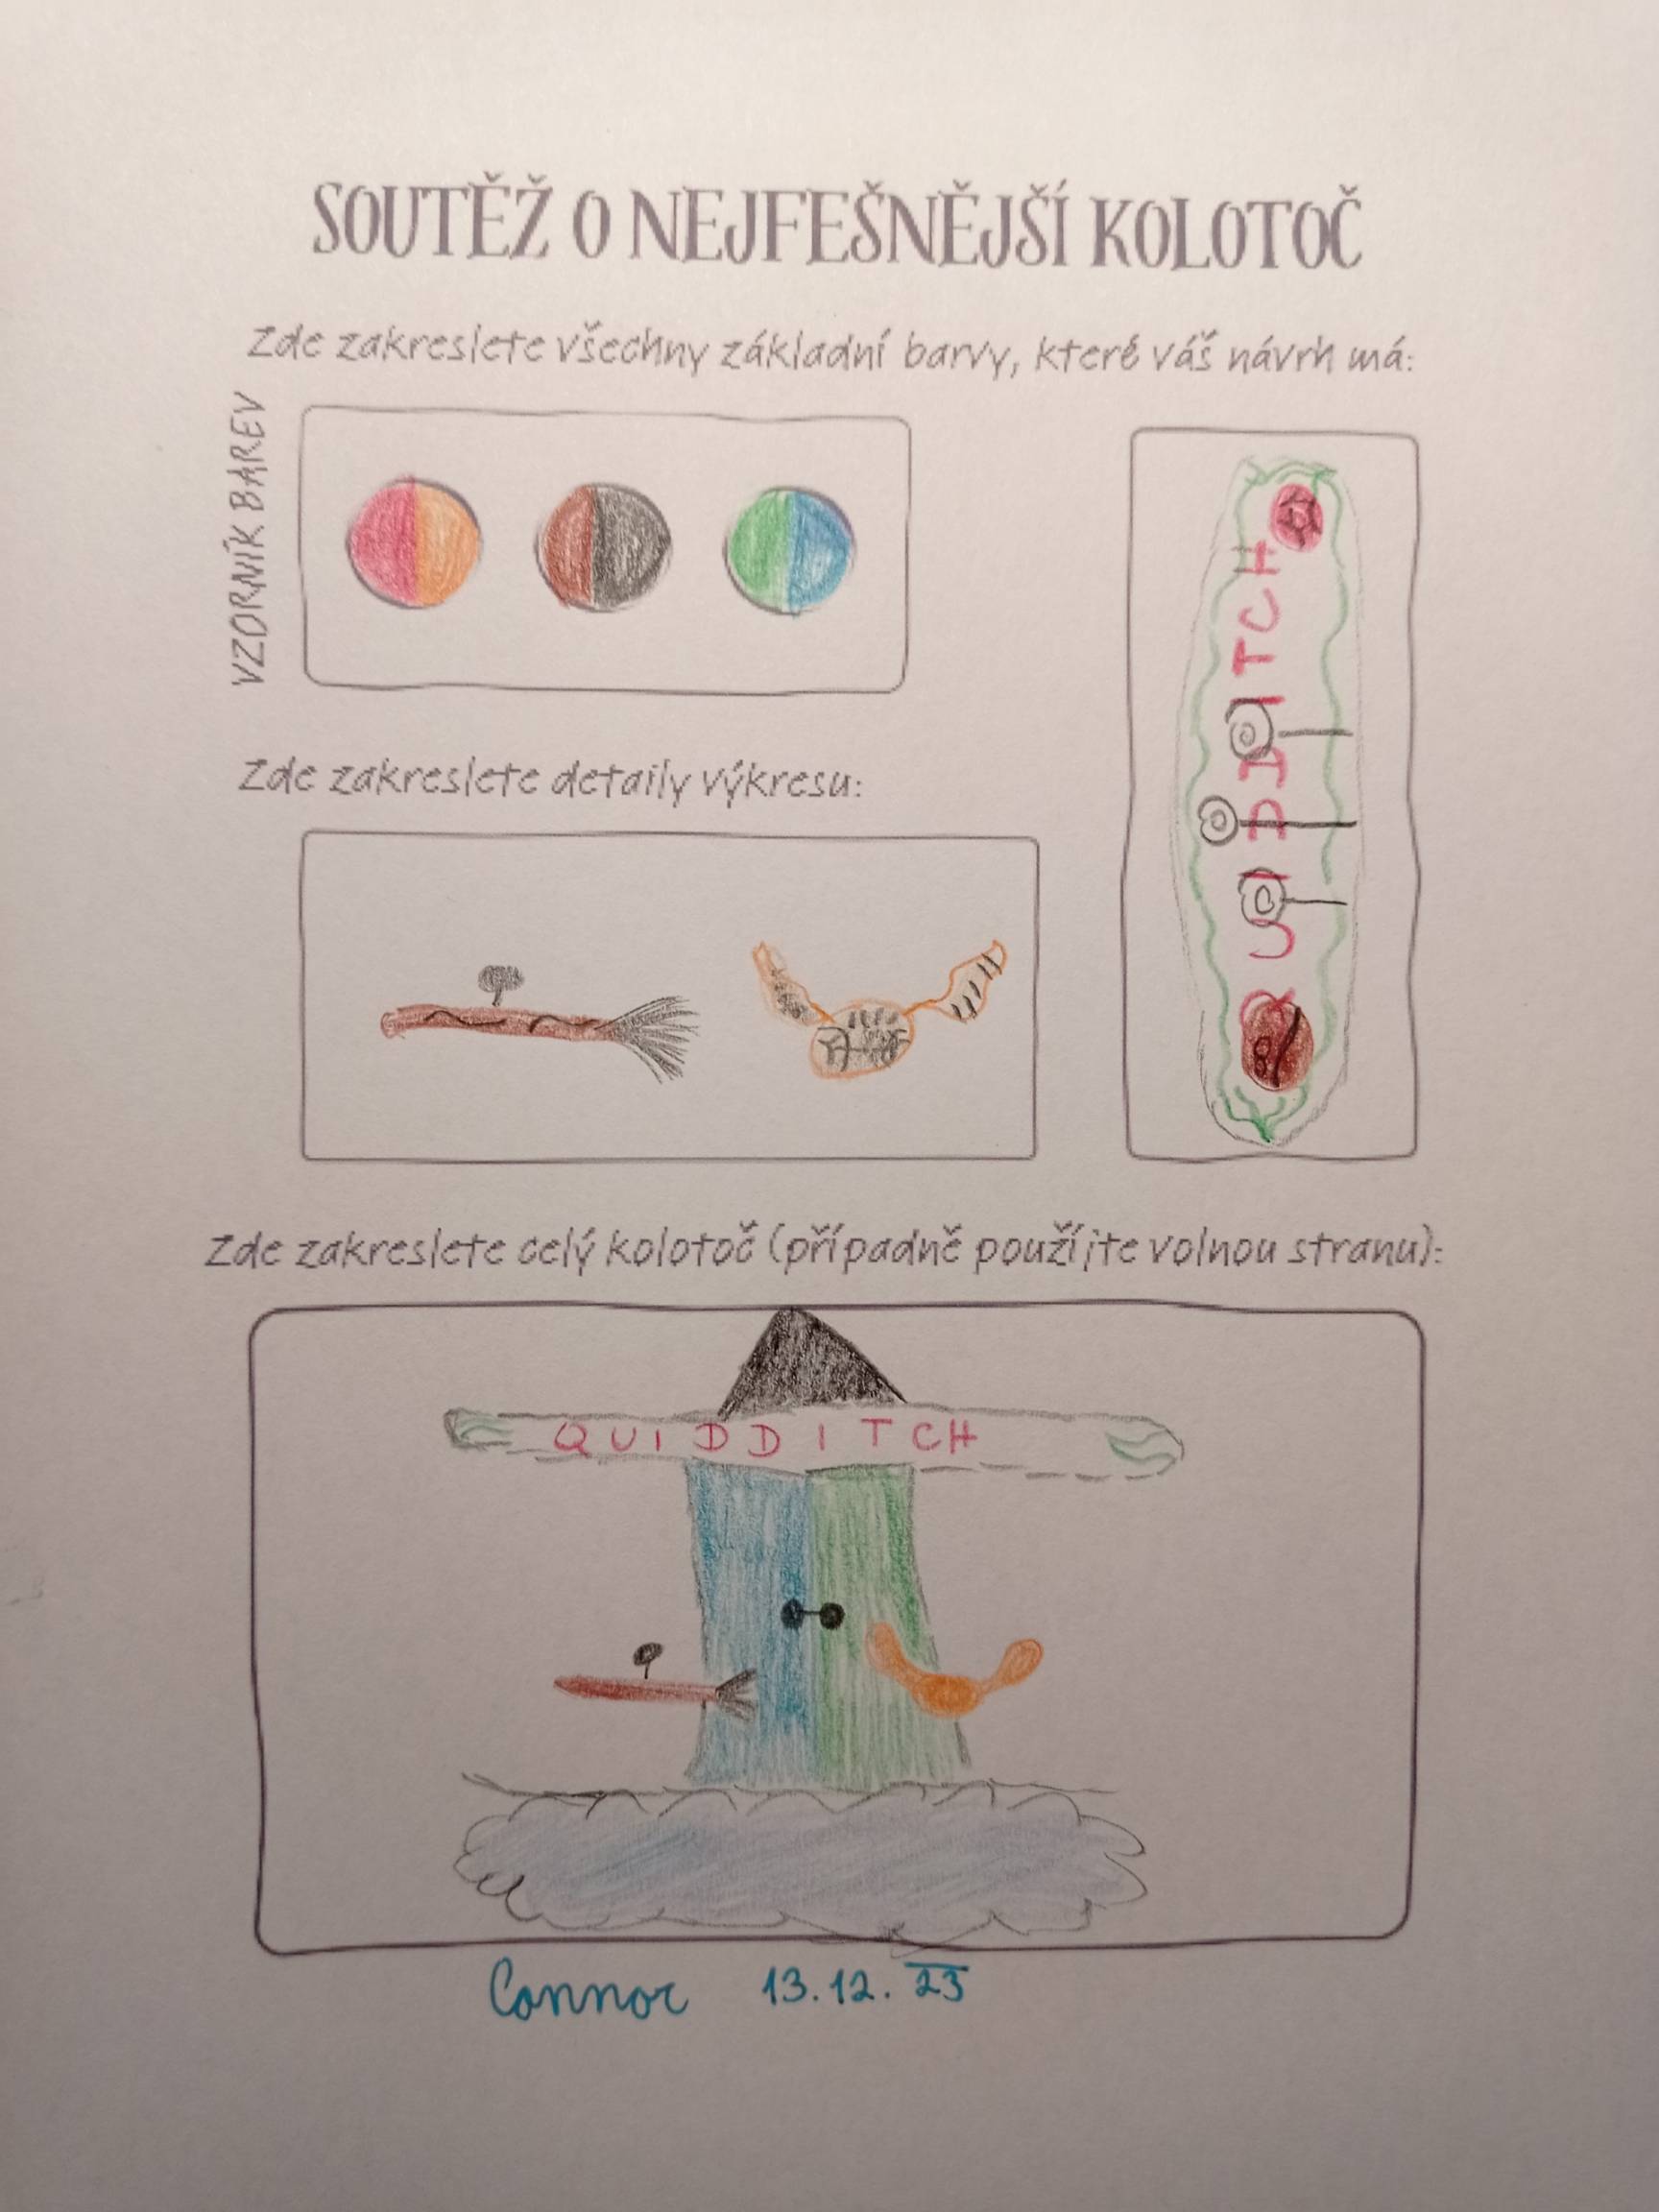 SOUTĚŽ O NEJFEŠNĚJŠÍ KOLOTOČ
Zde zakreslete všechny základní barvy, které váš návrh má:
VZORNÍK BAREV
QUIDDITCH
Zde zakreslete detaily výkresu:
Zde zakreslete celý kolotoč (případně použijte volnou stranu):
QUIDDITCH
Connor 13.12.23